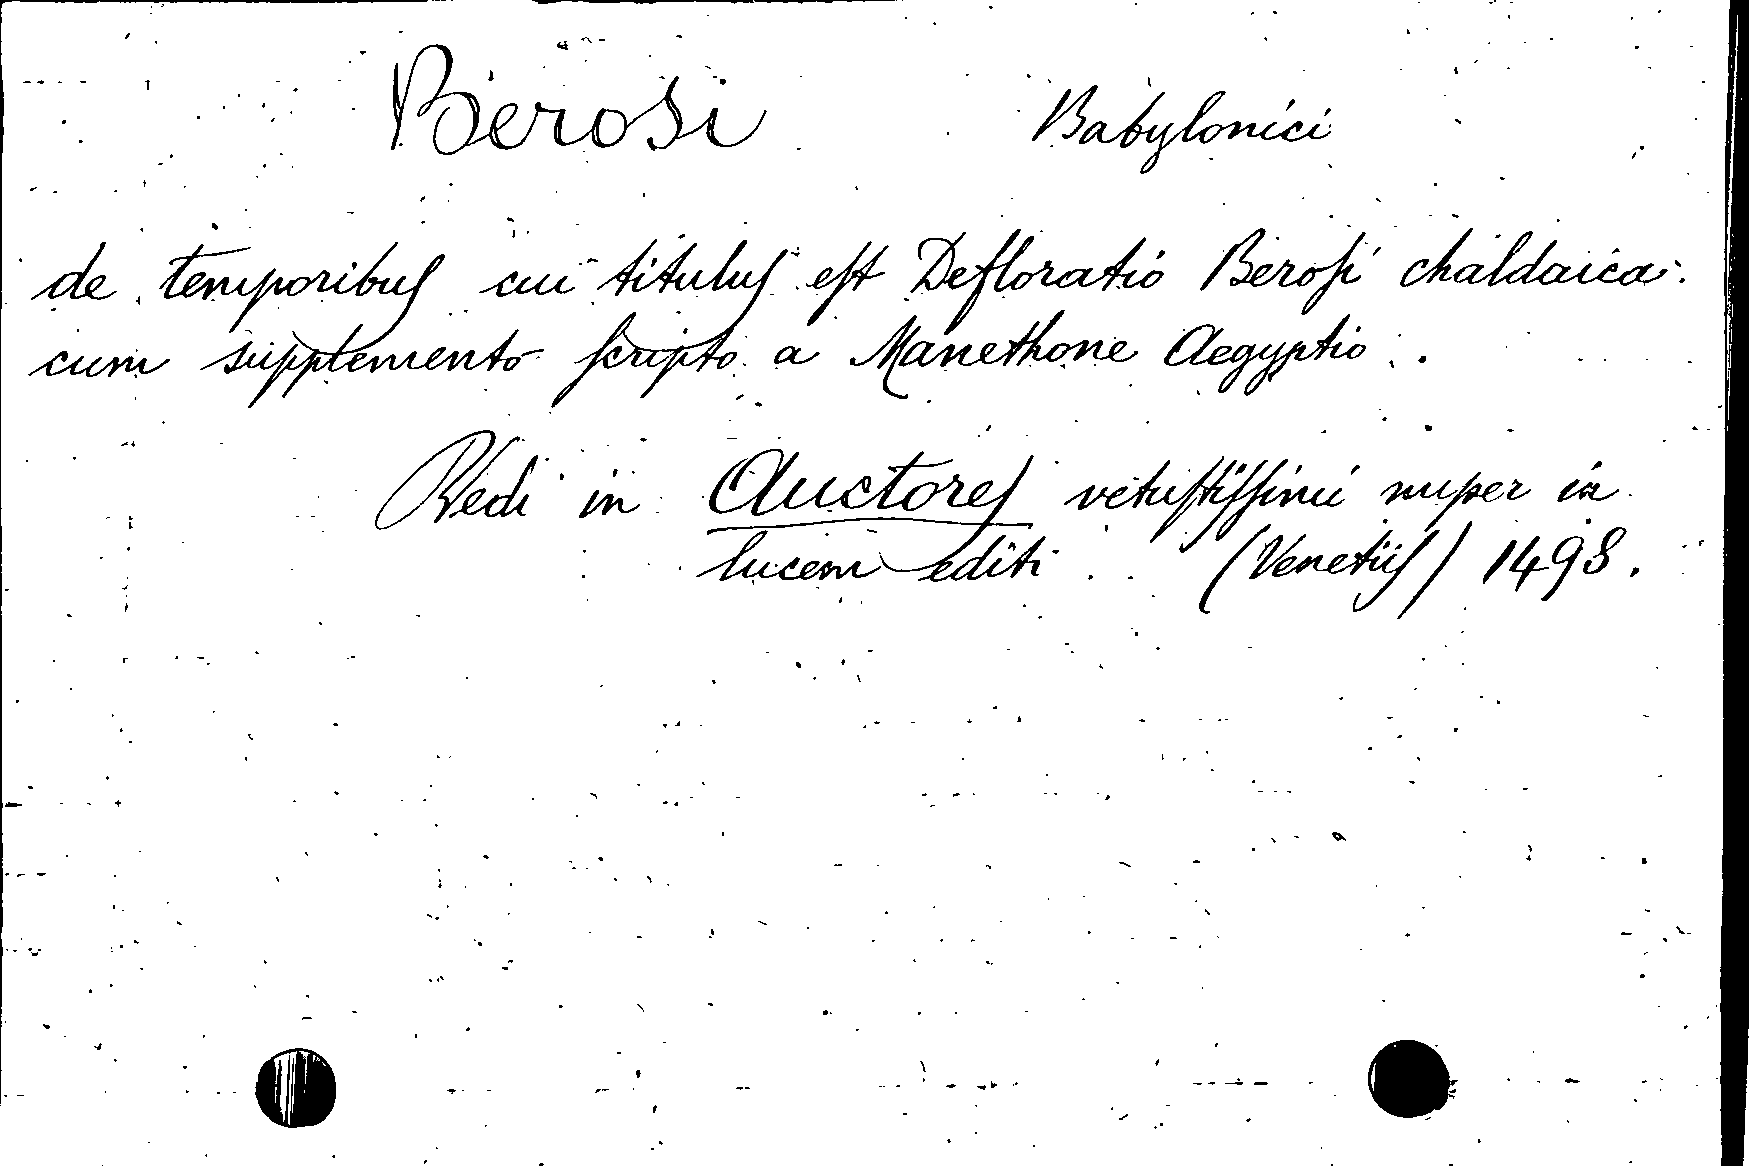 Berosi Babylonici
de temporibus cui titulus est Defloratio Berosi chaldaica.
cum supplemento scripto a Manethone Aegyptio.
Vedi in Auctores vetustissimi nuper in
lucem editi (Venetiis) 1498.